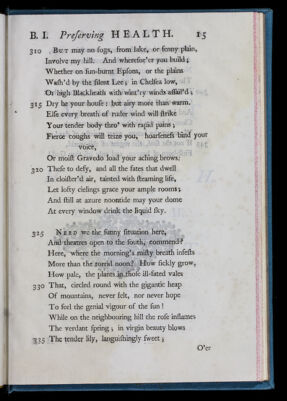 B. I. Preserving HEALTH. 15
310 BUT may no fogs, from lake, or fenny plain,
Involve my hill. And wheresoe'er you build;
Whether on sun-burnt Epsom, or the plains
Wash'd by the silent Lee; in Chelsea low,
Or high Blackheath with wint'ry winds assail'd;
315 Dry be your house: but airy more than warm.
Else every breath of ruder wind will strike
Your tender body thro' with rapid pains;
Fierce coughs will teize you, hoarseness bind your
voice,
Or moist Gravedo load your aching brows.
320 These to defy, and all the fates that dwell
In cloister'd air, tainted with steaming life,
Let lofty cielings grace your ample rooms;
And still at azure noontide may your dome
At every window drink the liquid sky.
325 NEED we the sunny situation here,
And theatres open to the south, commend?
Here, where the morning's misty breath infests
More than the torrid noon? How sickly grow,
How pale, the plants in those ill-fated vales
330 That, circled round with the gigantic heap
Of mountains, never felt, nor never hope
To feel the genial vigour of the sun!
While on the neighbouring hill the rose inflames
The verdant spring; in virgin beauty blows
335 The tender lily, languishingly sweet;
O'er